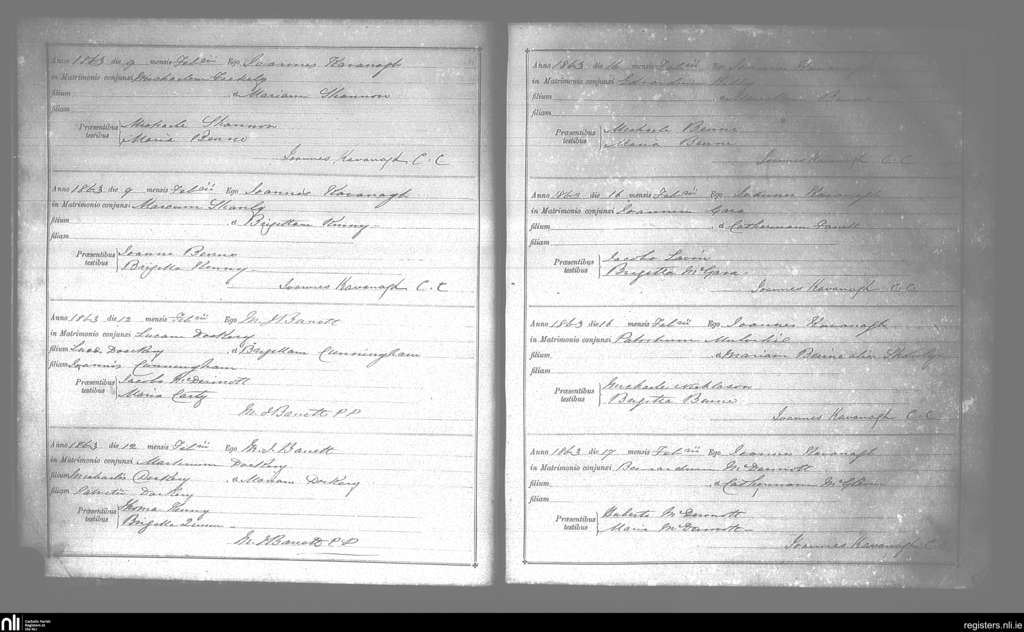 Anno 1863 die 9 mensis Feb rii Ego Joannes Kavanagh
in Matrimonio conjunxi Michaelem
filium a Mariam Shannon
filiam
Præsentibus testibus Michaele Shannon
Maria Beirne
Joannes Kavanagh C. C
Anno 1863 die 9 mensis Feb rii Ego Joannes Kavanagh
in Matrimonio conjunxi Marcum Shanly
filium a Brigettam Kenny
filiam
Præsentibus testibus Joanne Beirne
Brigetta Kenny
Joannes Kavanagh C. C
Anno 1863 die 12 mensis Feb rii Ego M. J Barrett
in Matrimonio conjunxi Lucam Dockery
filium Lucæ Dockery a Brigettam Cunningham
filiam Joannis Cunningham
Præsentibus testibus Jacobo McDermott
Maria Carty
M. J Barrett P P
Anno 1863 die 12 mensis Feb rii Ego M. J. Barrett
in Matrimonio conjunxi Martinum Dockery
filium Michaelis Dockery a Mariam Dockery
filiam Patritii Dockery
Præsentibus testibus Thoma Kenny
Brigetta
M. J Barrett P P
Anno 1863 die 16 mensis Feb rii Ego Joannes
in Matrimonio conjunxi
filium a Beirne
filiam
Præsentibus testibus Michaele Beirne
Maria Beirne
Joannes Kavanagh C C
Anno 1863 die 16 mensis Feb rii Ego Joannes Kavanagh
in Matrimonio conjunxi Joannem Gara
filium a Catherinam
filiam
Præsentibus testibus Jacobo Lavin
Brigetta McGara
Joannes Kavanagh C. C.
Anno 1863 die 16 mensis Feb rii Ego Joannes Kavanagh
in Matrimonio conjunxi Patritium
filium a Mariam Beirne alias
filiam
Præsentibus testibus Michaele
Brigetta Beirne
Joannes Kavanagh C C
Anno 1863 die 17 mensis Feb rii Ego Joannes Kavanagh
in Matrimonio conjunxi Bernardum McDermott
filium a Catherinam
filiam
Præsentibus testibus Roberto McDermott
Maria McDermott
Joannes Kavanagh C C
nli Catholic Parish Registers at the NLI
registers.nli.ie